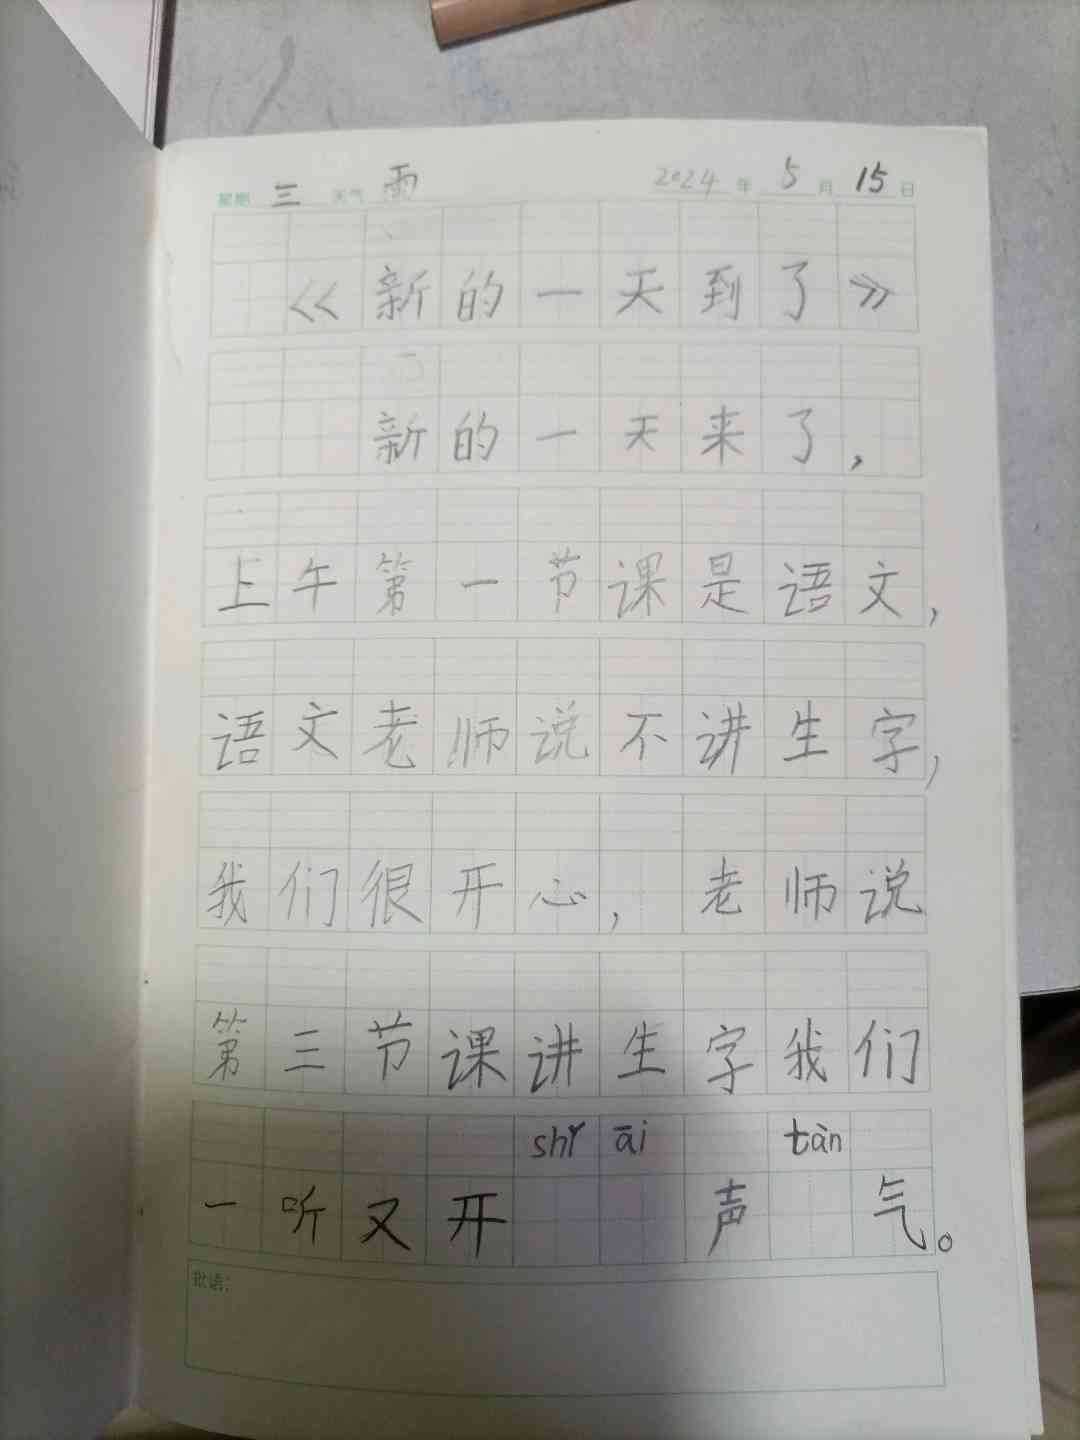 星期 三 天气 雨 2024 年 5 月 15 日
《新的一天到了》
新的一天来了,
上午第一节课是语文,
语文老师说不讲生字,
我们很开心,老师说
第三节课讲生字我们
shǐ āi tàn
一听又开 声 气。
批语: